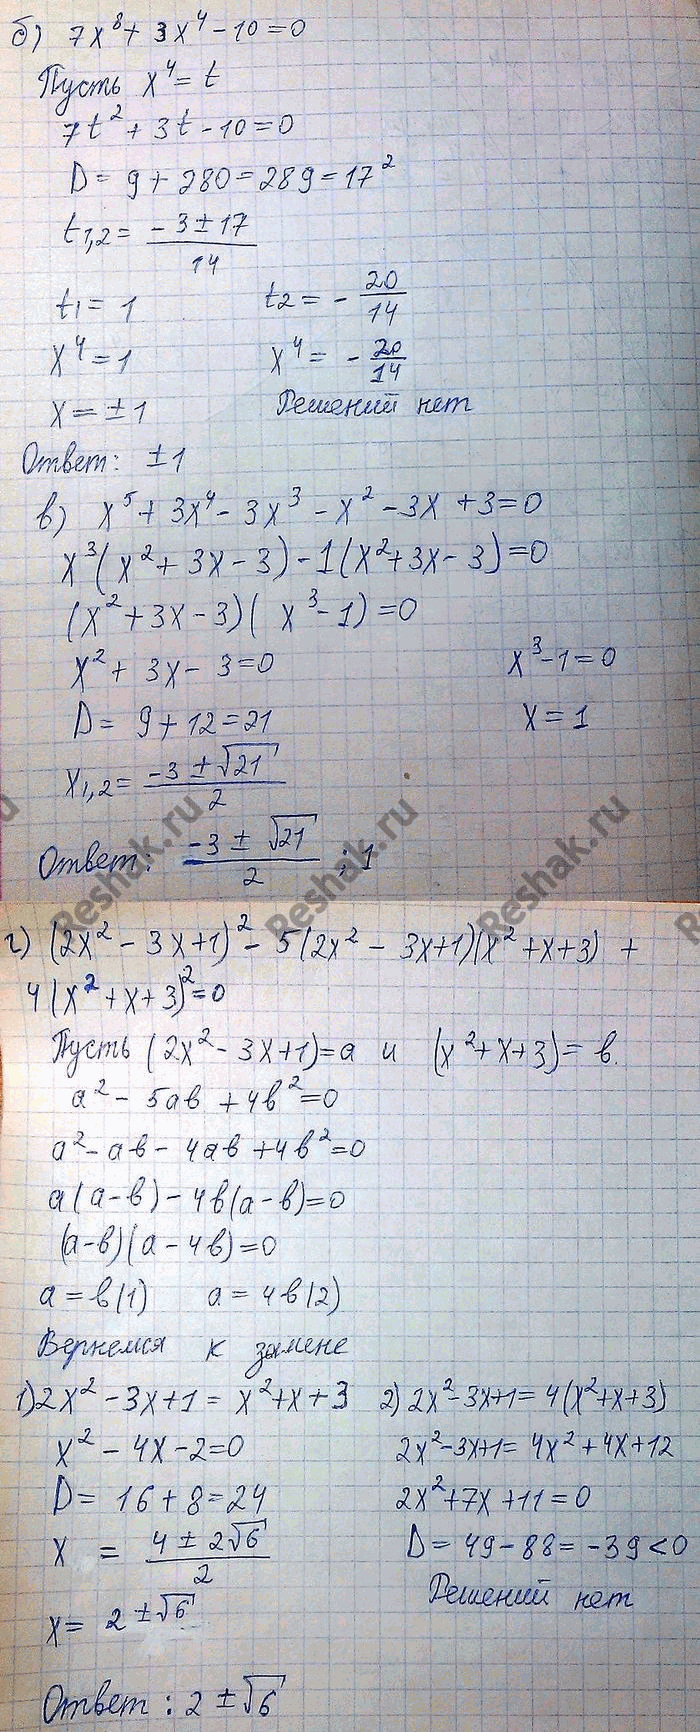 б) 7x⁸ + 3x⁴ - 10 = 0
Пусть x⁴ = t
7t² + 3t - 10 = 0
D = 9 + 280 = 289 = 17²
t₁,₂ = (-3 ± 17)/14
t₁ = 1 t₂ = -20/14
x⁴ = 1 x⁴ = -20/14
x = ±1 Решений нет
Ответ: ±1
в) x⁵ + 3x⁴ - 3x³ - x² - 3x + 3 = 0
x³(x² + 3x - 3) - 1(x² + 3x - 3) = 0
(x² + 3x - 3)(x³ - 1) = 0
x² + 3x - 3 = 0 x³ - 1 = 0
D = 9 + 12 = 21 x = 1
x₁,₂ = (-3 ± √21)/2
Ответ: (-3 ± √21)/2 ; 1
Reshak.ru Reshak.ru Reshak.ru
г) (2x² - 3x + 1)² - 5(2x² - 3x + 1)(x² + x + 3) +
4(x² + x + 3)² = 0
Пусть (2x² - 3x + 1) = a и (x² + x + 3) = в.
a² - 5aв + 4в² = 0
a² - aв - 4aв + 4в² = 0
a(a - в) - 4в(a - в) = 0
(a - в)(a - 4в) = 0
a = в (1) a = 4в (2)
Вернемся к замене
1) 2x² - 3x + 1 = x² + x + 3 2) 2x² - 3x + 1 = 4(x² + x + 3)
x² - 4x - 2 = 0 2x² - 3x + 1 = 4x² + 4x + 12
D = 16 + 8 = 24 2x² + 7x + 11 = 0
x = (4 ± 2√6)/2 D = 49 - 88 = -39 < 0
x = 2 ± √6 Решений нет
Ответ: 2 ± √6